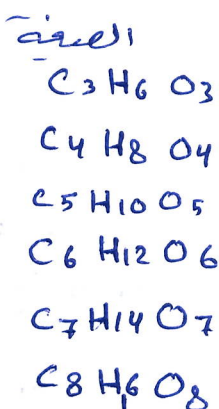 الصيغة
C3 H6 O3
C4 H8 O4
C5 H10 O5
C6 H12 O6
C7 H14 O7
C8 H16 O8